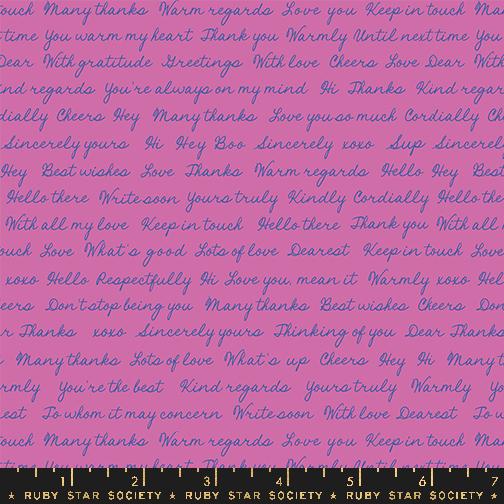 ouch Many thanks Warm regards Love you Keep in touch Man
time You warm my heart Thank you Warmly Until next time You
Dear With gratitude Greetings With love Cheers Love Dear With
nd regards You're always on my mind Hi Thanks Kind regar
dially Cheers Hey Many thanks Love you so much Cordially Ch
Sincerely yours Hi Hey Boo Sincerely xoxo Sup Sincerel
Hey Best wishes Love Thanks Warm regards Hello Hey Best
Hello there Write soon Yours truly Kindly Cordially Hello the
With all my love Keep in touch Hello there Thank you With all
ouch Love What's good Lots of love Dearest Keep in touch Love
xoxo Hello Respectfully Hi Love you, mean it Warmly xoxo Hel
eers Don't stop being you Many thanks Best wishes Cheers Don
r Thanks xoxo Sincerely yours Thinking of you Dear Thanks
Many thanks Lots of love What's up Cheers Hey Hi Many t
rmly You're the best Kind regards Yours truly Warmly Yo
est To whom it may concern Write soon With love Dearest To w
ouch Many thanks Warm regards Love you Keep in touch Man
time You warm my heart Thank you Warmly Until next time You
1 2 3 4 5 6 7
RUBY STAR SOCIETY ★ RUBY STAR SOCIETY ★ RUBY STAR SOCIETY ★